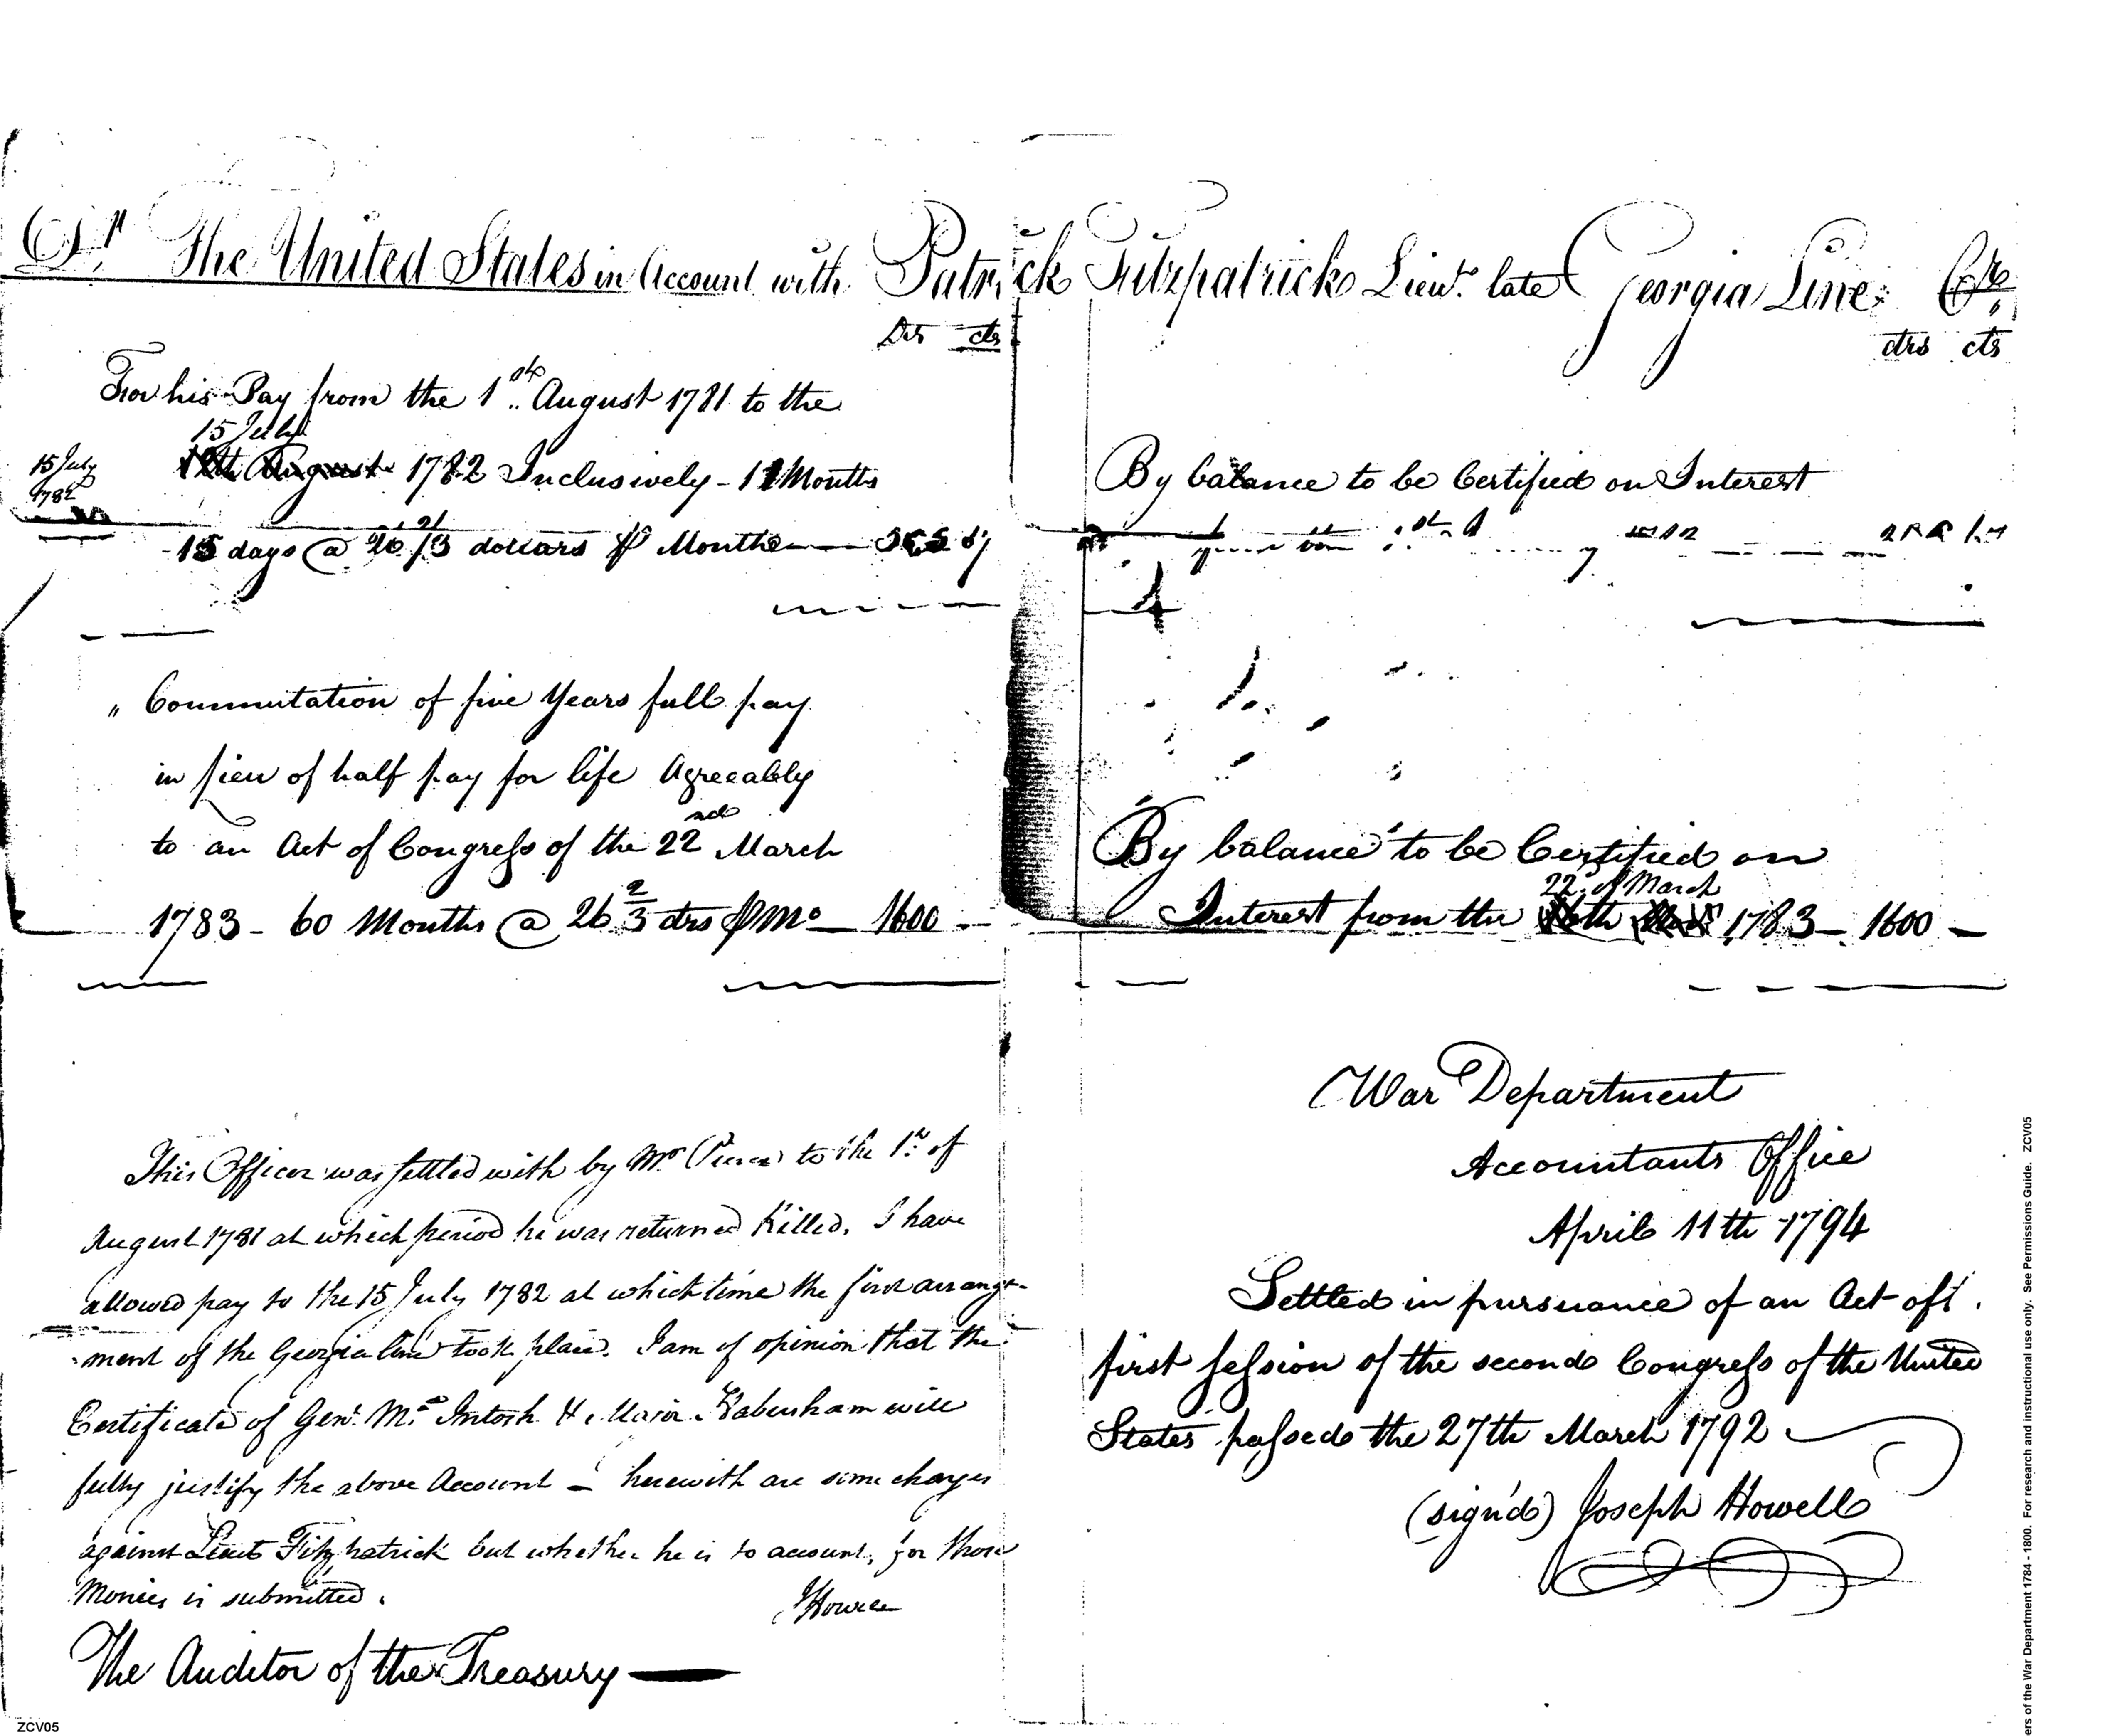 Dr. The United States in Account with Patrick Fitzpatrick Lieut. late Georgia Line Cr.
Drs cts
For his Pay from the 1st August 1781 to the
15 July
15 July
1782
1782 Inclusively - 11 Months
15 days @ 26 2/3 dollars ⅌ Month
" Commutation of five Years full pay
in lieu of half pay for life Agreeably
to an Act of Congress of the 22nd March
1783 - 60 Months @ 26 2/3 drs ⅌ Mo — 1600 -
This Officer was settled with by Mr Pierce to the 1st of
August 1781 at which period he was returned Killed. I have
allowed pay to the 15 July 1782 at which time the first arrange-
ment of the Georgia line took place. I am of opinion that the
Certificate of Genl. McIntosh & Major Habersham will
fully justify the above Account — herewith are some charges
against Lieut Fitzpatrick but whether he is to account, for those
Monies is submitted.
JHowell
The Auditor of the Treasury —
drs cts
By balance to be Certified on Interest
By balance to be Certified on
22d. of March
Interest from the 1783 — 1600 —
War Department
Accountants Office
April 11th 1794
Settled in pursuance of an Act of
first session of the second Congress of the United
States passed the 27th March 1792
(sign'd) Joseph Howell
ZCV05
ers of the War Department 1784 - 1800. For research and instructional use only. See Permissions Guide. ZCV05